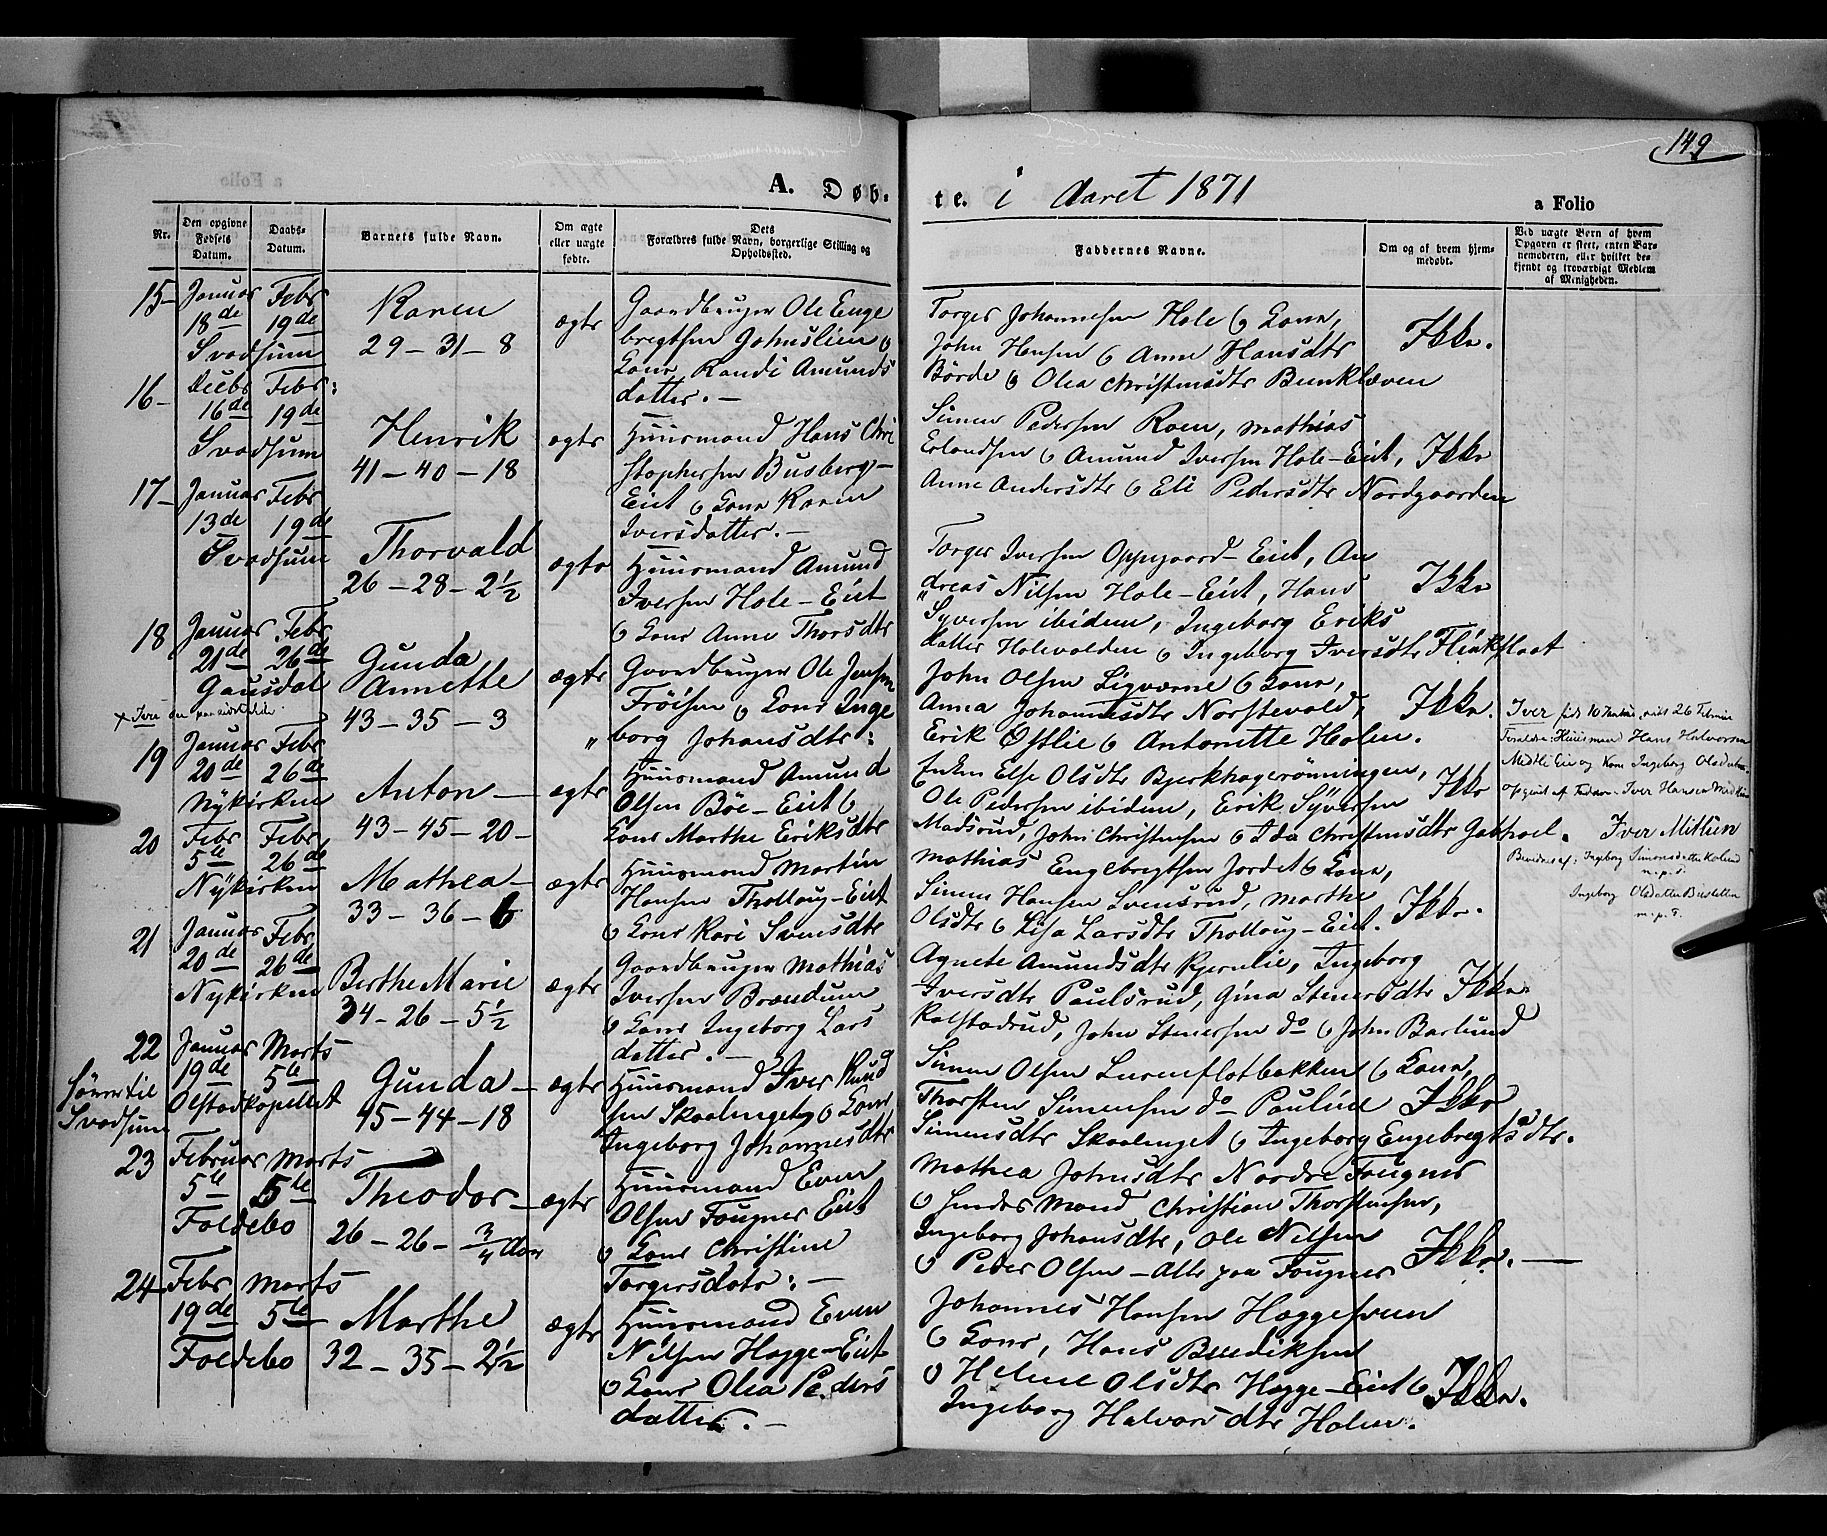 149
A. Døb-
te. i Aaret 1871
a Folio
Nr.
Den opgivne
Fødsels
Datum.
Daabs-
Datum.
Barnets fulde Navn.
Om ægte
eller uægte
fødte.
Dets
Forældres fulde Navn, borgerlige Stilling og
Opholdssted.
Faddernes Navne.
Om og af hvem hjem-
medøbt.
Ved uægte Børn af hvem
Opgaven er skeet, enten Bar-
nemoderen, eller hvilket be-
kjendt og troværdigt Medlem
af Menigheden.
15 –
Januar
18de
Febr
19de
Svadsum
Karen
29 – 31 – 8
ægte
Gaardbruger Ole Enge
bregtsen Johnslien o
Kone Randi Amunds
datter. –
Torger Johannesen Hole o Kone,
John Hansen o Anne Hansdtr
Börde o Olea Christensdtr Bunkleven
Ikke.
16 –
Decbr
16de
Febr:
19de
Svadsum
Henrik
41 – 40 – 18
ægte
Huusmand Hans Chri
stophersen Busberg –
Eiet o Kone Karen
Iversdatter. –
Simen Pedersen Roen, Mathias
Erlandsen o Amund Iversen Hole-Eiet,
Anne Andersdtr o Eli Pedersdtr Nordgaarden
Ikke
17 –
Januar
13de
Febr
19de
Svadsum
Thorvald
26 – 28 – 2½
ægte
Huusmand Amund
Iversen Hole – Eiet
o Kone Anne Thorsdtr
Torger Iversen Oppegaard – Eiet, An
dreas Nilsen Hole – Eiet, Hans
Syversen ibidem, Ingeborg Eriks
datter Holevolden o Ingeborg Iversdtr Flinkfloat
Ikke
18
Januar
21de
Febr
26de
Gausdal
Gunda
Annette
43 – 35 – 3
ægte
Gaardbruger Ole Jensen
Fröisen o Kone Inge
borg Johansdtr:
John Olsen Ligværne o Kone,
Anna Johannesdtr Norstevold,
Erik Østlie o Antonette Holen.
Ikke.
Iver født 10 Januar, døbt 26 Februar
Forældre: Huusmand Hans Halvorsen
Midtli Eie og Kone Ingeborg Olsdatter
opgivet af Fadder Iver Hansen Midtlien
Iver Mitlien
Bevidnes af: Ingeborg Simensdatter
m. p. s.
Ingeborg Olsdatter
m. p. s.
19
Januar
20de
Febr
26de
Nykirken
Anton –
43 – 45 – 20 –
ægte
Huusmand Amund
Olsen Böe – Eiet o
Kone Marthe Eriksdtr
Enken Else Olsdtr Bjerkhagerönningen,
Ole Pedersen ibidem, Erik Syversen
Madsrud, John Christensen o Ida Christensdtr
Ikke
20
Febr
5te
Febr
26de
Nykirken
Mathea –
33 – 36 – 6
ægte
Huusmand Martin
Hansen Tholloug – Eiet
o Kone Kari Svensdtr
Mathias Engebregtsen Jordet o Kone,
Simen Hansen Svensrud, Marthe
Olsdtr o Lisa Larsdtr Tholloug – Eiet.
Ikke.
21
Januar
20de
Febr
26de
Nykirken
Berthe Marie
34 – 26 – 5½
ægte
Gaardbruger Mathias
Iversen Brændum
o Kone Ingeborg Lars
datter. –
Agnete Amundsdtr Kjernlie, Ingeborg
Iversdtr Paulsrud, Gina Stenersdtr
Kalstadrud, John Stenersen do o John Barlund
Ikke.
22
Januar
19de
Marts
5te
Olstadkapellet
hörer til
Svadsum
Gunda –
45 – 44 – 18
ægte
Huusmand Iver Knud
sen Skaalenget o Kone
Ingeborg Johannesdtr
Simen Olsen Lurenflotbakken o Kone,
Thorsten Simensen do Pauline
Simensdtr Skaalenget o Ingeborg Engebregtsdtr.
Ikke
23
Februar
5te
Marts
5te
Foldebo
Theodor –
26 – 26 – ¾
ægte
Huusmand Even
Olsen Fougner Eiet
o Kone Christine
Torgersdatr: –
Mathea Johnsdtr Nordre Fougner
o hendes Mand Christian Thorstensen,
Ingeborg Johansdtr, Ole Nilsen
o Peder Olsen – Alle paa Fougner
Ikke. –
24
Febr
19de
Marts
5te
Foldebo
Marthe
32 – 35 – 2½
ægte
Huusmand Even
Nilsen Hagge – Eiet
o Kone Olea Peders
datter. –
Johannes Hansen Haggesveen
o Kone, Hans Bendiksen
o Helene Olsdtr Hagge – Eiet o
Ingeborg Halvorsdtr Holen.
Ikke.